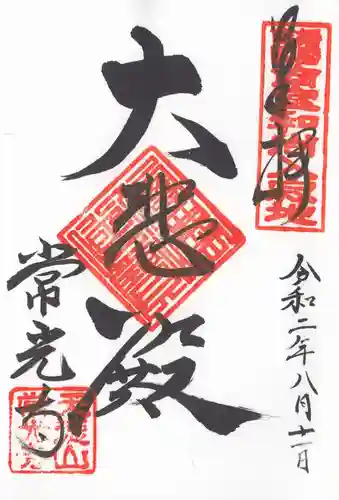 奉拝
令和二年八月十一日
大悲殿
常光寺